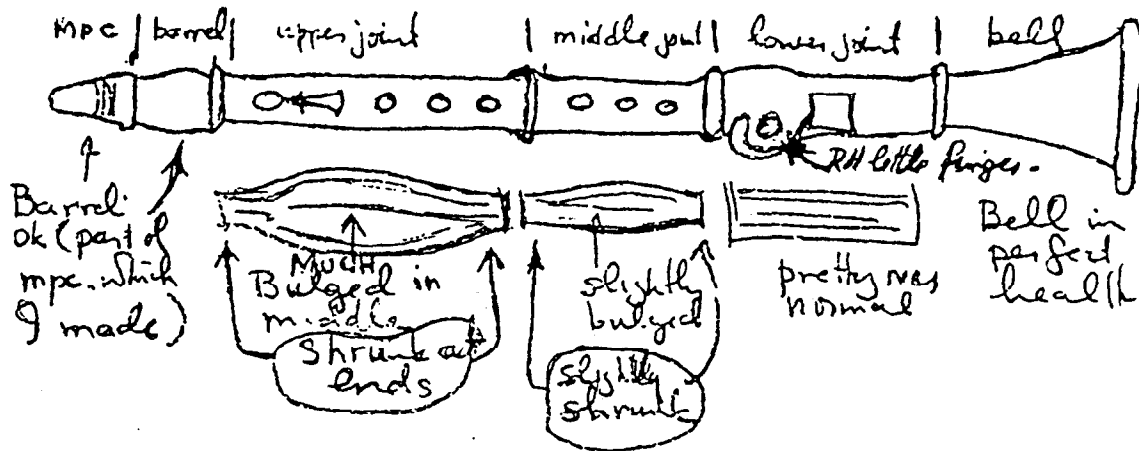 mpc | barrel | upper joint | middle joint | lower joint | bell
RH little finger.
Barrel
ok (part of
mpc. which
I made)
MUCH
Bulged in
middle
shrunk at
ends
slightly
bulged
slightly
shrunk
pretty near
normal
Bell in
perfect
health